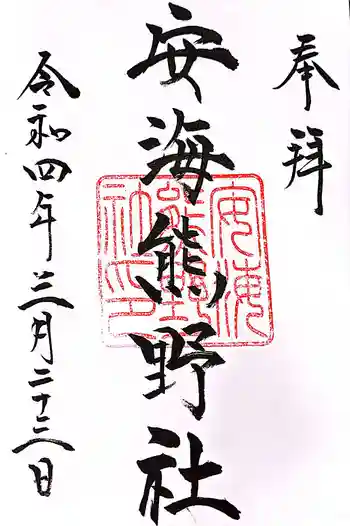 奉拝
安海熊野社
安海熊野社印
令和四年三月二十三日